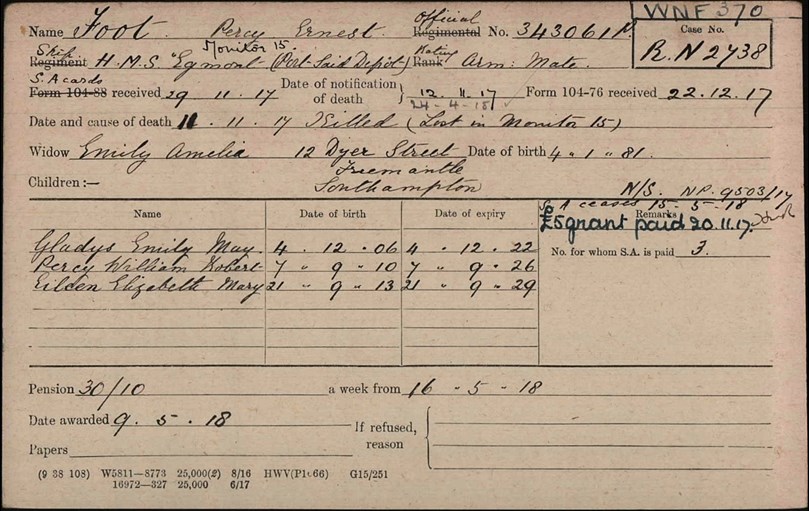 WNF 370
Name Foot. Percy Ernest. Official Regimental No. 343061 Case No.
R.N 2738
Ship Regiment H.M.S "Egmont" Monitor 15. (Port Said Depot) Rating Rank Arm: Mate.
S.A cards
Form 104-88 received 29 11 . 17 Date of notification of death } 12 . 11 . 17 Form 104-76 received 22.12.17
24-4-18
Date and cause of death 11 . 11 . 17 Killed (Lost in Monitor 15)
Widow Emily Amelia 12 Dyer Street Date of birth 4 " 1 " 81.
Freemantle
Children :— Southampton N/S. NP. 9503/17
S.A ceases 15-5-18
Name Date of birth Date of expiry Remarks
£5 grant paid 20.11.17.
Gladys Emily May. 4 . 12 . 06 4 . 12 . 22 No. for whom S.A. is paid 3.
Percy William Robert 7 " 9 " 10 7 " 9 . 26
Eileen Elizabeth Mary 21 " 9 " 13 21 " 9 " 29
Pension 30/10 a week from 16 - 5 - 18
Date awarded 9. 5 . 18 If refused, reason
Papers
(9 38 108) W5811—8773 25,000(2) 8/16 HWV(P1666) G15/251
16972—327 25,000 6/17